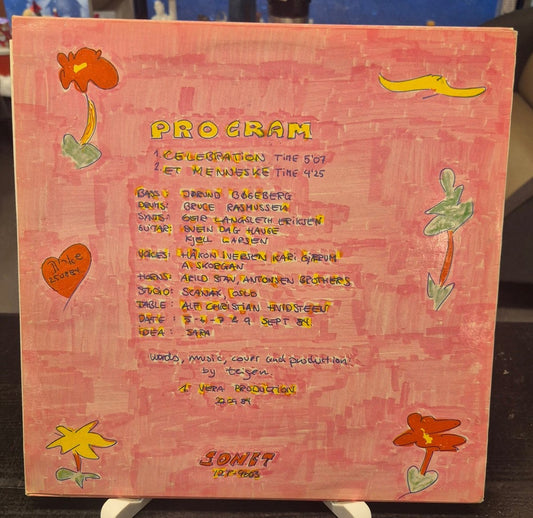 PROGRAM
1. CELEBRATION TIME 5'07
2. ET MENNESKE TIME 4'25
BASS: JØRUND BØGEBERG
DRUMS: BRUCE RASMUSSEN
SYNTS: GEIR LANGSLETH ERIKSEN
GUITAR: SVEIN DAG HAUGE
KJELL LARSEN
VOICES: HÅKON IVERSEN KARI GJÆRUM
A. SKORGAN
HORNS: ARILD STAV, ANTONSEN BROTHERS
STUDIO: SCANAX, OSLO
TABLE: ALF CHRISTIAN HVIDSTEEN
DATE: 5-6-7 & 9 SEPT 84
IDEA: JAPA
words, music, cover and production
by teigen.
1° VERA PRODUCTION
22.09 84
SONET
12T-9603